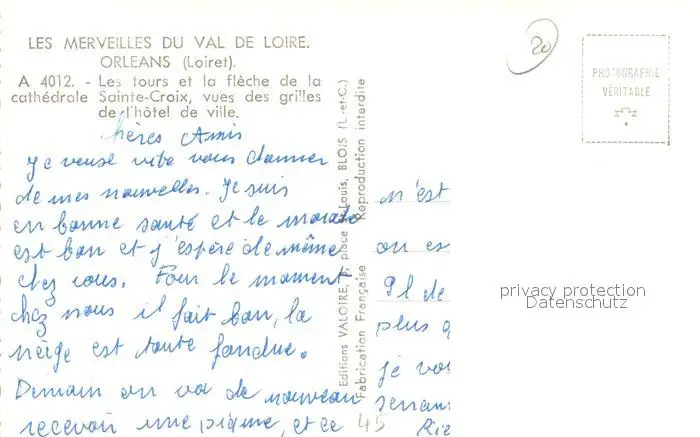 LES MERVEILLES DU VAL DE LOIRE.
ORLEANS (Loiret).
A 4012. - Les tours et la flèche de la
cathédrale Sainte-Croix, vues des grilles
de l'hôtel de ville.
20
PHOTOGRAPHIE
VÉRITABLE
hères Amis
Je veuse vite vous donner
de mes nouvelles. Je suis
en bonne santé et le morale
est bon et j'espère de même
chez vous. Pour le moment
chez nous il fait bon, la
neige est toute fondue.
Demain on va de nouveau
recevoir une piqure, et ce
Editions VALOIRE, place Louis, BLOIS (L.-et-C.)
Fabrication Française Reproduction interdite
n'est
on es
Il de
plus
je vo
serran
Rie
45
privacy protection
Datenschutz